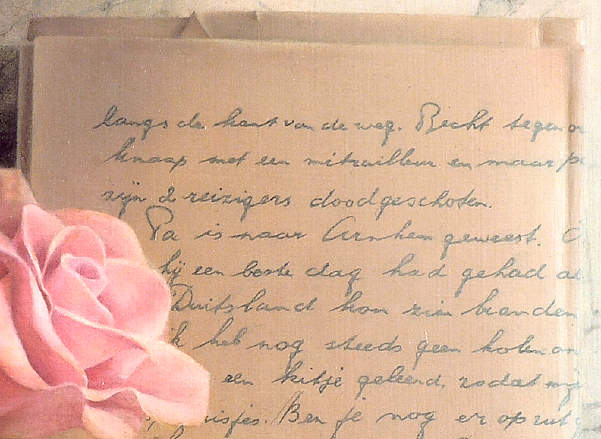 langs de kant van de weg. Recht tegen
knaap met een mitrailleur en maar
zijn 2 reizigers doodgeschoten.
Pa is naar Arnhem geweest.
hij een beste dag had gehad
Duitsland kon zien branden
ik heb nog steeds geen kolen
een kitje geleend, zodat
Ben je nog er op uit